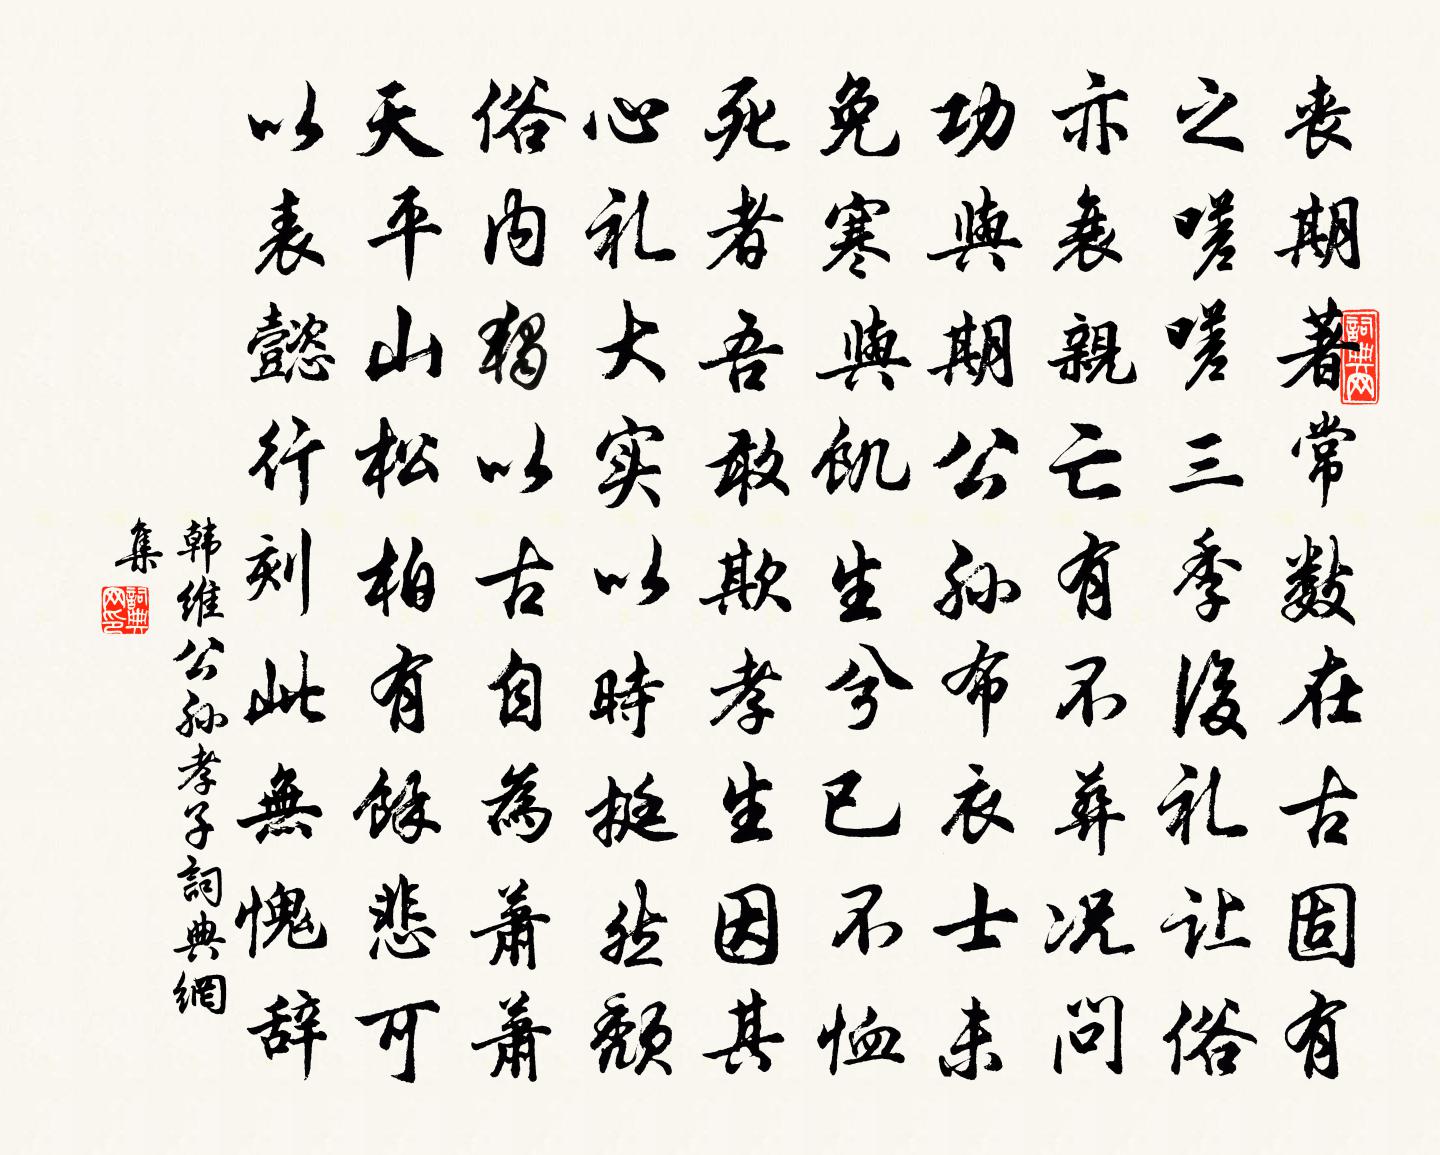 丧期著常数在古固有
之嗟嗟三季後礼让俗
亦衰親亡有不葬况问
功與期公孙布衣士未
免寒與飢生兮已不恤
死者吾敢欺孝生因其
心礼大实以時挺然颓
俗内独以古自為萧萧
天平山松柏有餘悲可
以表懿行刻此無愧辞
韩维公孙孝子詞典網
集
詞典网
詞典网印